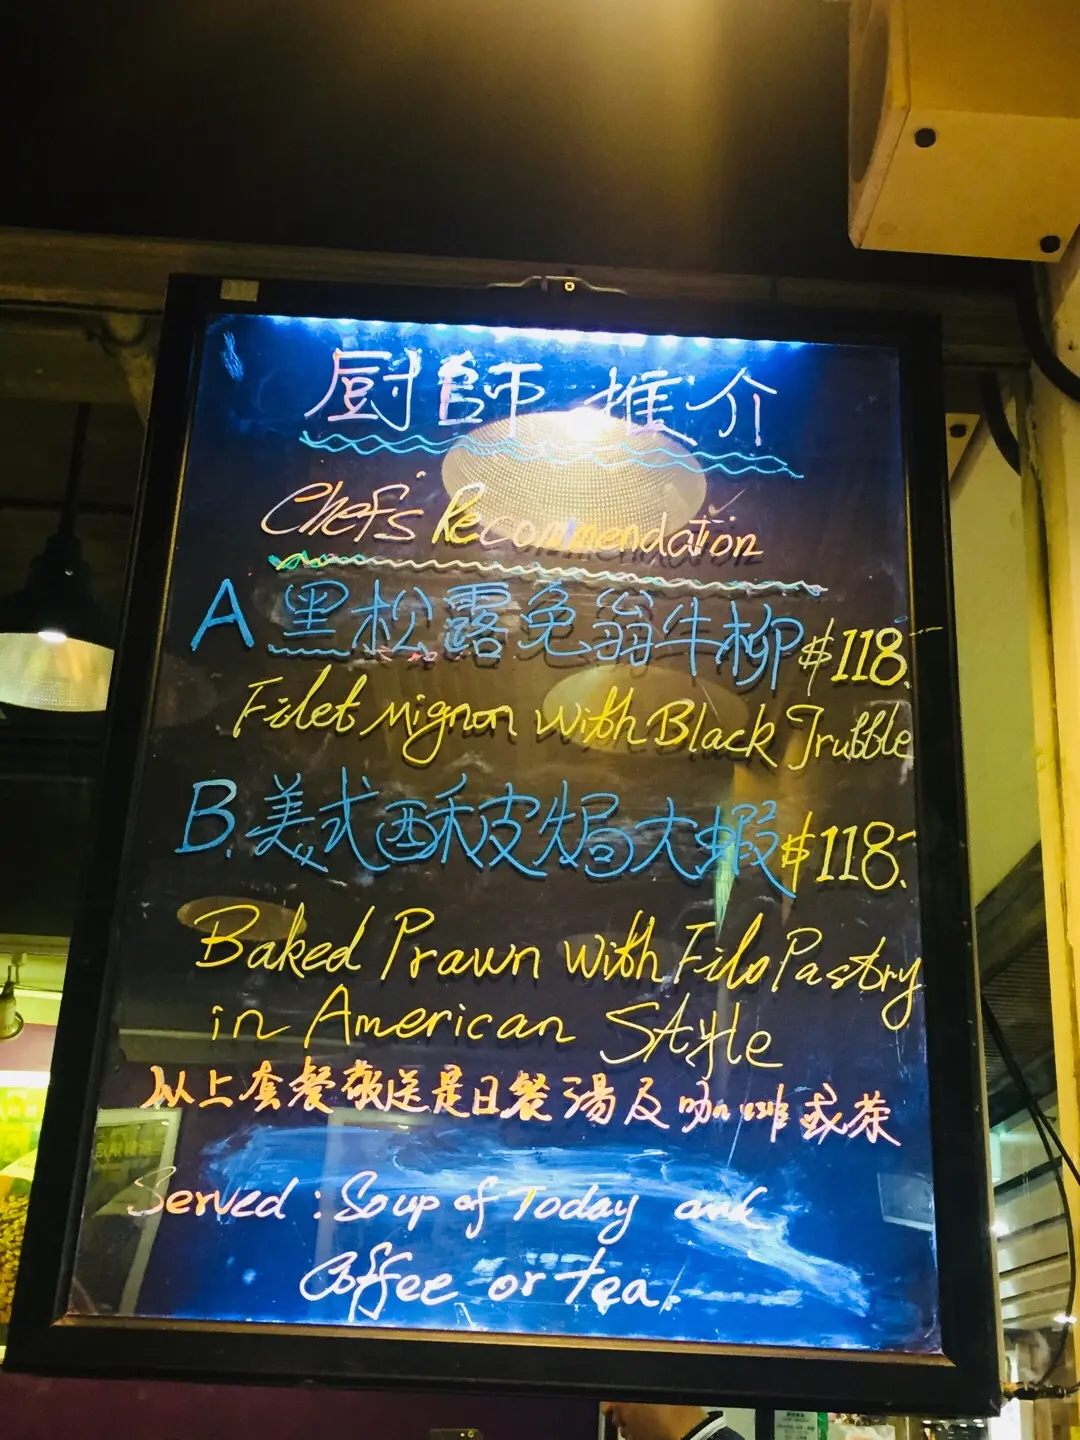 厨師推介
Chef's Recommendation
A 黑松露免翁牛柳 $118.-
Filet Mignon with Black Truffle
B. 美式酥皮焗大蝦 $118.-
Baked Prawn with Filo Pastry
in American Style
以上套餐敬送是日餐湯及咖啡或茶
Served : Soup of Today and
Coffee or tea.